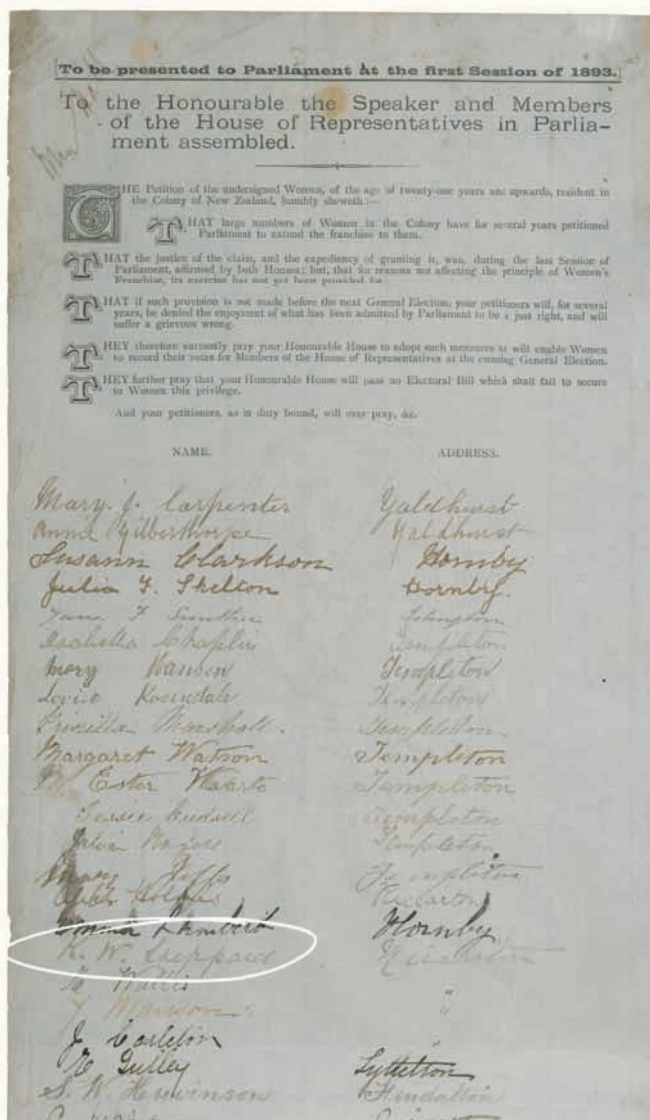 To be presented to Parliament at the first Session of 1893.
To the Honourable the Speaker and Members
of the House of Representatives in Parlia-
ment assembled.
THE Petition of the undersigned Women, of the age of twenty-one years and upwards, resident in
the Colony of New Zealand, humbly sheweth:—
THAT large numbers of Women in the Colony have for several years petitioned
Parliament to extend the franchise to them.
THAT the justice of the claim, and the expediency of granting it, was, during the last Session of
Parliament, affirmed by both Houses; but, that for reasons not affecting the principle of Women's
Franchise, its exercise has not yet been provided for.
THAT if such provision is not made before the next General Election, your petitioners will, for several
years, be denied the enjoyment of what has been admitted by Parliament to be a just right, and will
suffer a grievous wrong.
THEY therefore earnestly pray your Honourable House to adopt such measures as will enable Women
to record their votes for Members of the House of Representatives at the ensuing General Election.
THEY further pray that your Honourable House will pass no Electoral Bill which shall fail to secure
to Women this privilege.
And your petitioners, as in duty bound, will ever pray, &c.
NAME. ADDRESS.
Mary. J. Carpenter Yaldhurst
Annie Gilberthorpe Yaldhurst
Susann Clarkson Hornby
Julia F. Shelton Hornby.
Jane F
Isabella Chaplin Templeton
Mary Hansen Templeton
Louise Rosendale Templeton
Priscilla Marshall. Templeton
Margaret Watson Templeton
M Ester Templeton
Templeton
Julia Rogers Templeton
Mary Templeton
Riccarton
Emma Lambert Hornby
K. W. Sheppard Riccarton
Wallis
Manson "
J Carleton "
E Gulley Lyttelton
S. W.